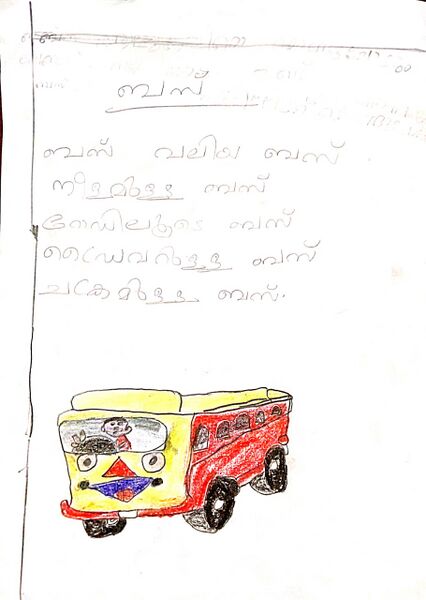 ബസ്
ബസ് വലിയ ബസ്
നീളമുള്ള ബസ്
റോഡിലൂടെ ബസ്
ഡ്രൈവറുള്ള ബസ്
ചക്രമുള്ള ബസ്.